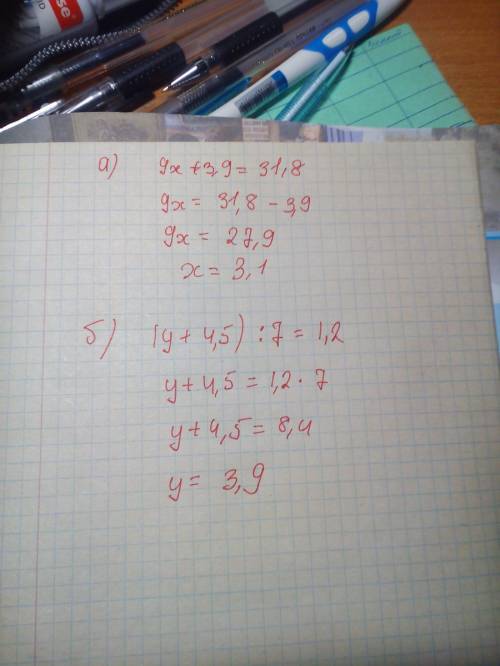 а) 9x + 3,9 = 31,8
9x = 31,8 - 3,9
9x = 27,9
x = 3,1
б) (y + 4,5) : 7 = 1,2
y + 4,5 = 1,2 · 7
y + 4,5 = 8,4
y = 3,9